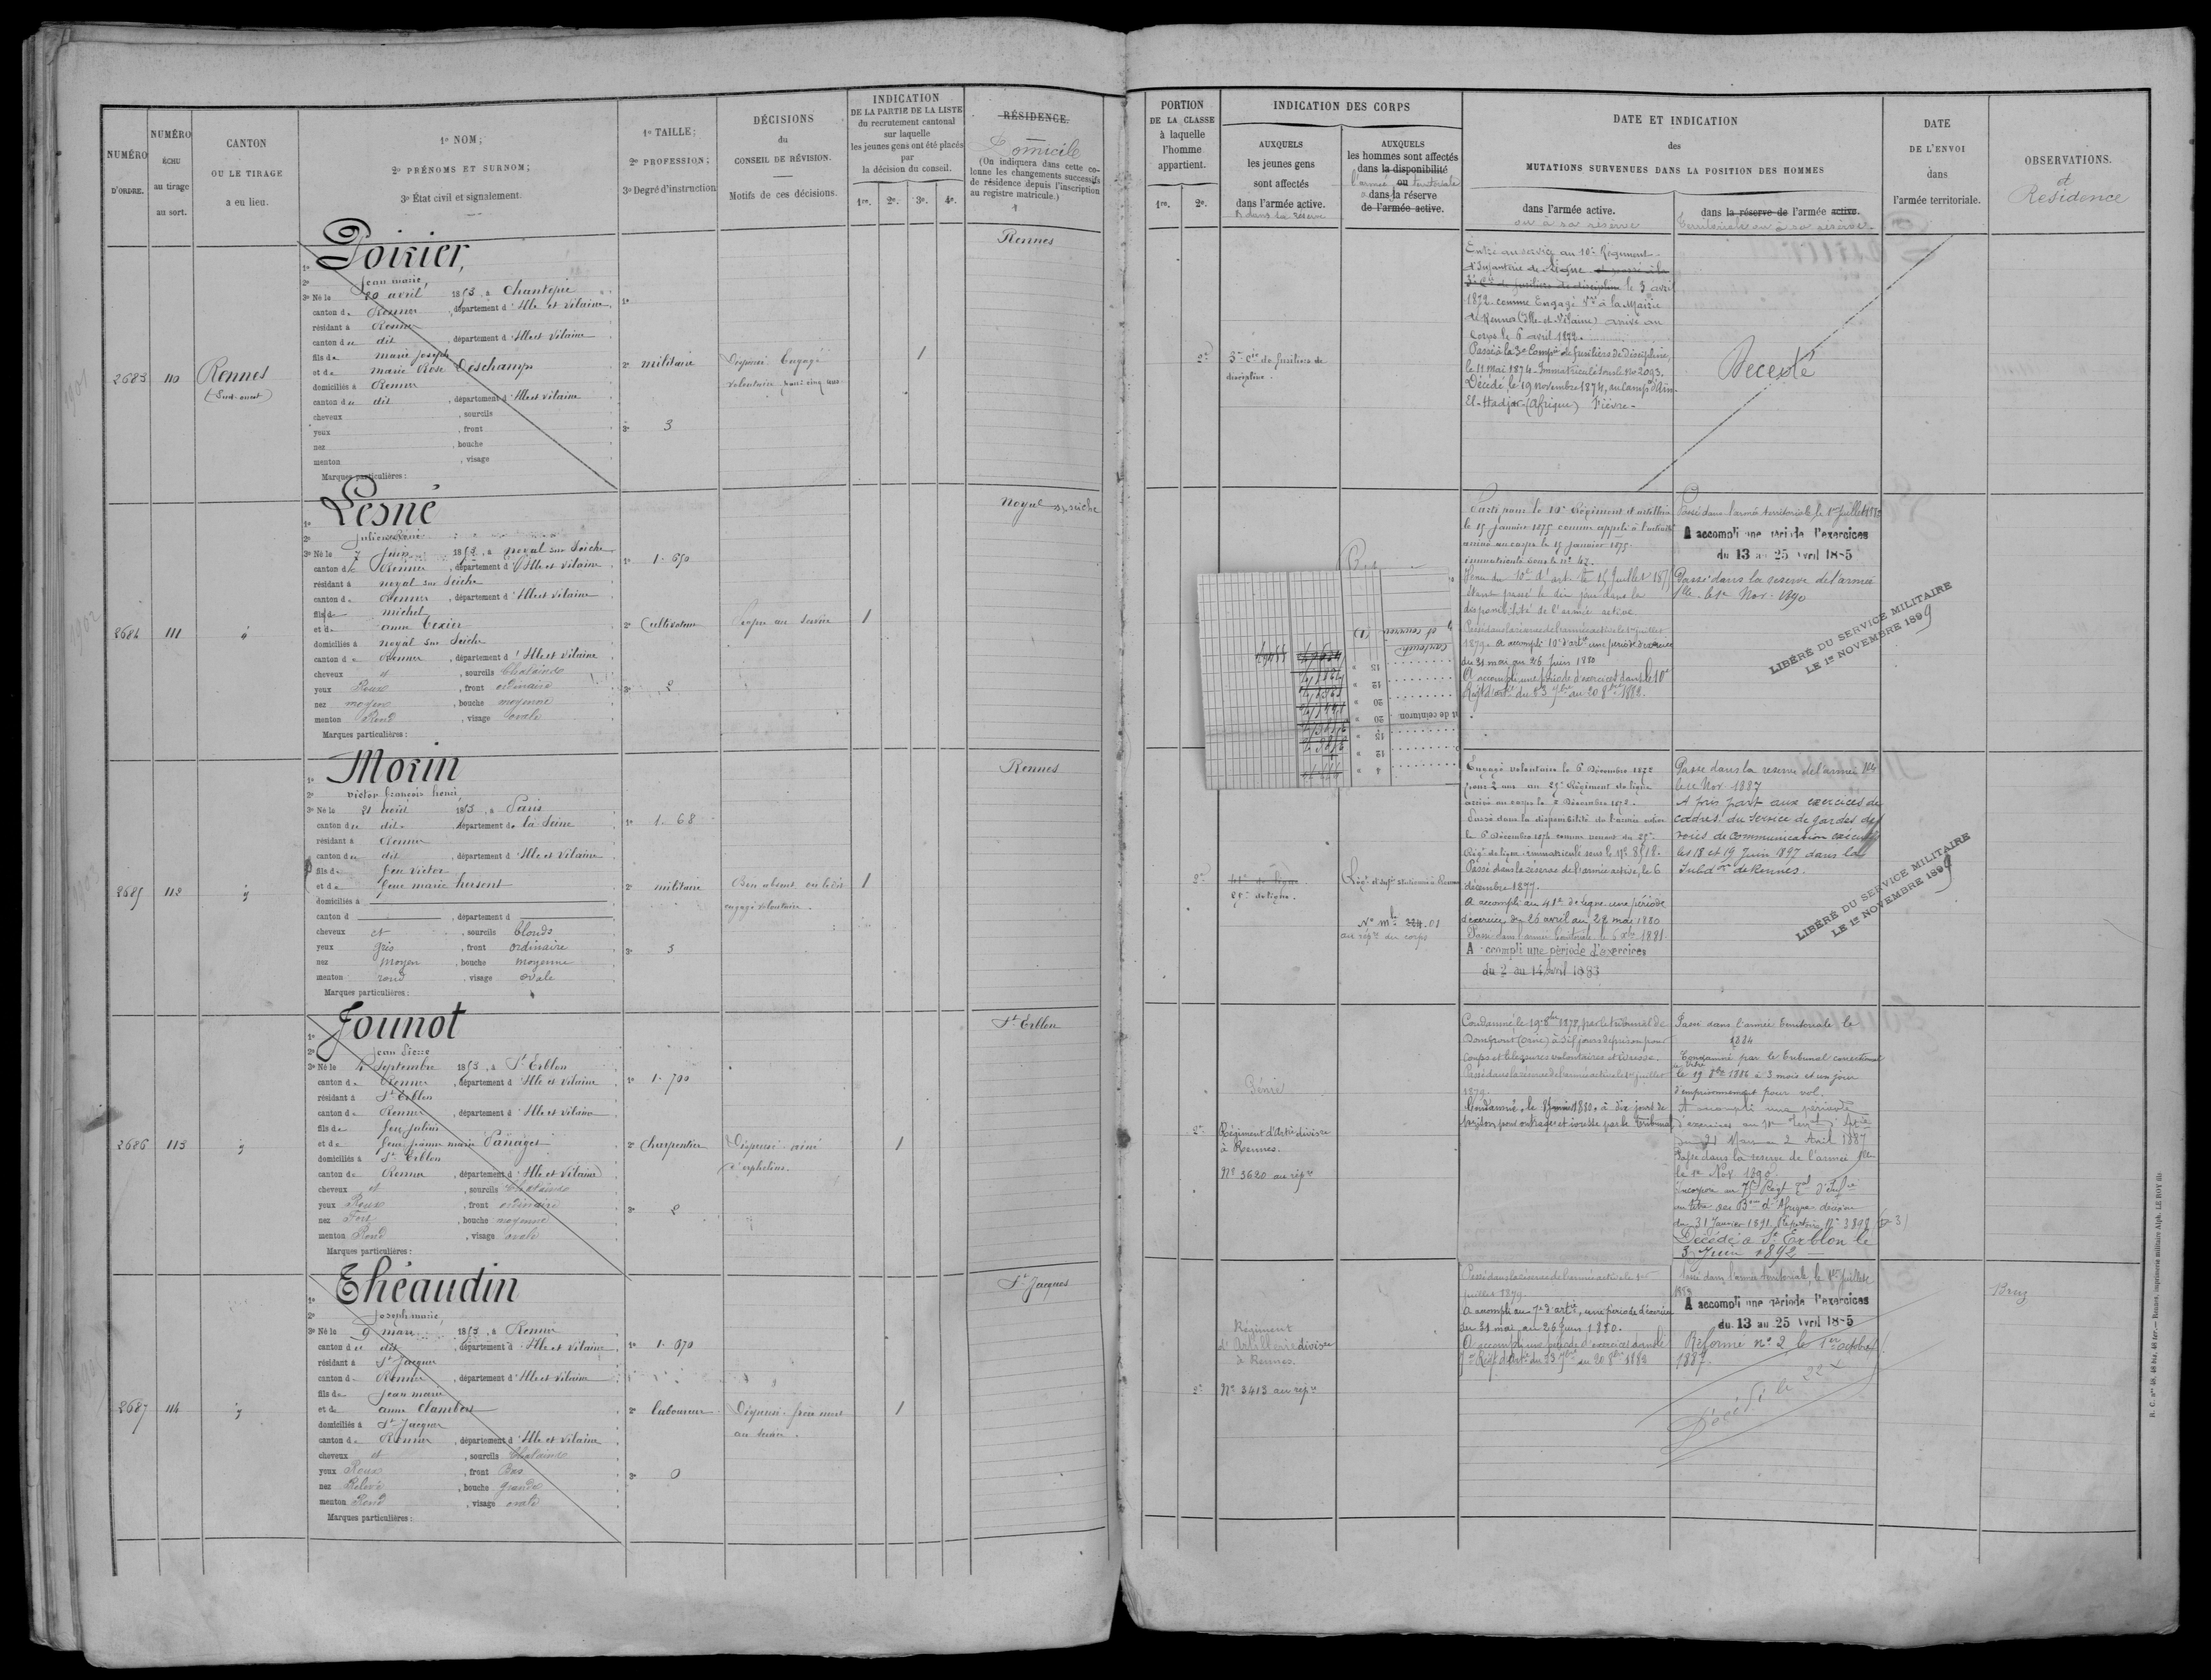 NUMÉRO
D'ORDRE.
NUMÉRO
ÉCHU
au tirage
au sort.
CANTON
OU LE TIRAGE
a eu lieu.
1º NOM;
2º PRÉNOMS ET SURNOM;
3º État civil et signalement.
1º TAILLE;
2º PROFESSION;
3º Degré d'instruction
DÉCISIONS
du
CONSEIL DE RÉVISION.
Motifs de ces décisions.
INDICATION
DE LA PARTIE DE LA LISTE
du recrutement cantonal
sur laquelle
les jeunes gens ont été placés
par
la décision du conseil.
1re. 2e. 3e. 4e.
RÉSIDENCE.
Domicile
(On indiquera dans cette co-
lonne les changements successifs
de résidence depuis l'inscription
au registre matricule.)
2683
110
Rennes
(Sud-ouest)
1º Poirier,
2º Jean marie,
3º Né le 20 avril 1853, à Chantepie
canton de Rennes, département d'Ille et Vilaine
résidant à Rennes
canton du dit, département d'Ille et Vilaine
fils de marie joseph
et de marie Rose Deschamps
domiciliés à Rennes
canton du dit, département d'Ille et Vilaine
cheveux , sourcils
yeux , front
nez , bouche
menton , visage
Marques particulières :
1º
2º militaire
3º 3
Dispensé Engagé
volontaire pour cinq ans
1
Rennes
2684
111
1º Lesné
2º Julien René
3º Né le 7 Juin 1853, à noyal sur Seiche
canton de Rennes, département d'Ille et Vilaine
résidant à noyal sur Seiche
canton de Rennes, département d'Ille et Vilaine
fils de michel
et de anne Texier
domiciliés à noyal sur Seiche
canton de Rennes, département d'Ille et Vilaine
cheveux et, sourcils Chatains
yeux Roux, front ordinaire
nez moyen, bouche moyenne
menton Rond, visage ovale
Marques particulières :
1º 1.650
2º Cultivateur
3º 2
Propre au service
1
Noyal sr seiche
2685
112
1º Morin
2º victor françois henri,
3º Né le 21 août 1853, à Paris
canton du dit, département de la Seine
résidant à Rennes
canton du dit, département d'Ille et Vilaine
fils de feu victor
et de feue marie hersent
domiciliés à
canton d , département d
cheveux et, sourcils blonds
yeux gris, front ordinaire
nez moyen, bouche moyenne
menton rond, visage ovale
Marques particulières :
1º 1.68
2º militaire
3º 3
Bon absent
engagé volontaire.
1
Rennes
2686
113
1º Jounot
2º Jean Pierre
3º Né le 4 Septembre 1853, à St Erblon
canton de Rennes, département d'Ille et Vilaine
résidant à St Erblon
canton de Rennes, département d'Ille et Vilaine
fils de feu Julien
et de feue jeanne marie Panaget
domiciliés à St Erblon
canton de Rennes, département d'Ille et Vilaine
cheveux et, sourcils Chatains
yeux Roux, front ordinaire
nez Fort, bouche moyenne
menton Rond, visage ovale
Marques particulières :
1º 1.700
2º Charpentier
3º 2
Dispensé ainé
d'orphelins.
1
St Erblon
2687
114
1º Théaudin
2º Joseph marie,
3º Né le 9 mars 1853, à Rennes
canton du dit, département d'Ille et Vilaine
résidant à St Jacques
canton de Rennes, département d'Ille et Vilaine
fils de Jean marie
et de anne Clambert
domiciliés à St Jacques
canton de Rennes, département d'Ille et Vilaine
cheveux et, sourcils Chatains
yeux Roux, front Bas
nez Relevé, bouche grande
menton Rond, visage ovale
Marques particulières :
1º 1.670
2º laboureur
3º 0
Dispensé frère mort
au service.
1
St Jacques
PORTION
DE LA CLASSE
à laquelle
l'homme
appartient.
1re. 2e.
INDICATION DES CORPS
AUXQUELS
les jeunes gens
sont affectés
dans l'armée active.
& dans la réserve
AUXQUELS
les hommes sont affectés
dans la disponibilité
l'armée ou territoriale
dans la réserve
de l'armée active.
DATE ET INDICATION
des
MUTATIONS SURVENUES DANS LA POSITION DES HOMMES
dans l'armée active.
ou à sa réserve
dans la réserve de l'armée active.
Territoriale ou à sa réserve.
DATE
DE L'ENVOI
dans
l'armée territoriale.
OBSERVATIONS.
et
Résidence
2e
3e Cie de fusiliers de
discipline.
Entré au service au 10e Régiment
d'Infanterie de Ligne et passé à la
3e Cie de fusiliers de discipline le 3 avril
1872 comme Engagé Vre à la Mairie
de Rennes (Ille-et-Vilaine) arrivé au
Corps le 6 avril 1872.
Passé à la 3e Compie de fusiliers de Discipline,
le 11 Mai 1874 - Immatriculé sous le No 2093.
Décédé le 19 novembre 1874, au Camp d'Ain-
El-Hadjar (Afrique) Fièvre-
Decédé
Parti pour le 10e Régiment d'artillerie
le 15 janvier 1875 comme appelé à l'activité
arrivé au corps le 15 janvier 1875.
immatriculé sous le no 42.
Venu du 10e d'art. le 15 Juillet 1875
étant passé le dit jour dans la
disponibilité de l'armée active
Passé dans la réserve de l'armée active le 1er juillet
1879. A accompli 10e d'artie une période d'exercices
du 31 mai au 26 Juin 1880
A accompli une période d'exercices dans le 10e
Régt d'artie du 23 7bre au 20 8bre 1882.
Passé dans l'armée territoriale, le 1er juillet 1884
A accompli une période d'exercices
du 13 au 25 Avril 1885
Passé dans la réserve de l'armée
Tlle le 1er Nov. 1890
LIBÉRÉ DU SERVICE MILITAIRE
LE 1er NOVEMBRE 1899
cartouch
et de ceinturon
15 »
12 »
20 »
20 »
15 »
12 »
4 »
2e
25e de ligne.
No mle 224.01
au répre du corps
Engagé volontaire le 6 Décembre 1872
pour 2 ans au 25e Régiment de ligne
arrivé au corps le 8 Décembre 1872.
Passé dans la disponibilité de l'armée active
le 6 Décembre 1874 comme venant du 25e
Régt de ligne immatriculé sous le No 8518.
Passé dans la réserve de l'armée active, le 6
décembre 1877.
A accompli au 41e de ligne une période
d'exercices du 26 avril au 22 mai 1880
Passé dans l'armée Territoriale le 6 xbre 1881
A accompli une période d'exercices
du 2 au 14 Avril 1883
Passé dans la réserve de l'armée Tlle
le 1er Nov 1887
A pris part aux exercices de
cadres du service de gardes des
voies de communication exécutés
les 18 et 19 Juin 1897 dans la
Subdon de Rennes.
LIBÉRÉ DU SERVICE MILITAIRE
LE 1er NOVEMBRE 1899
2e
Génie
Régiment d'Artie divisre
à Rennes.
No 3620 au répre
Condamné, le 19 8bre 1878, par le tribunal de
Domfront (Orne) à dix jours de prison pour
coups et blessures volontaires et ivresse.
Passé dans la réserve de l'armée active le 1er juillet
1879.
Condamné, le 1880, à dix jours de
prison pour outrages et ivresse par le tribunal
Passé dans l'armée territoriale le
1884
Condamné par le tribunal correctionnel
de Vitré
le 19 8bre 1886 à 3 mois et un jour
d'emprisonnement pour vol.
A accompli une période
d'exercices au 10e Régt d'Artie
du 21 Mars au 2 Avril 1887
Passé dans la réserve de l'armée Tlle
le 1er Nov 1890
Incorporé au 75e Régt Tal d'Infie
au titre des Bons d'Afrique décision
du 31 Janvier 1891. Répertoire No 3898
Décédé à St Erblon le
3 Juin 1892
2e
Régiment
d'Artillerie divisre
à Rennes.
No 3413 au répre
Passé dans la réserve de l'armée active le 1er
juillet 1879.
A accompli au 7e d'artie, une période d'exercices
du 31 mai au 26 Juin 1880.
A accompli une période d'exercices dans le
7e Régt d'Artie du 23 7bre au 20 8bre 1882
Passé dans l'armée territoriale, le 1er Juillet
1884
A accompli une période d'exercices
du 13 au 25 Avril 1885
Réformé no 2 le 1er octobre
1887.
Décédé le 22
Bruz
R. C. nos 48, 48 bis, 48 ter. — Rennes, imprimerie militaire Alph. LE ROY fils.